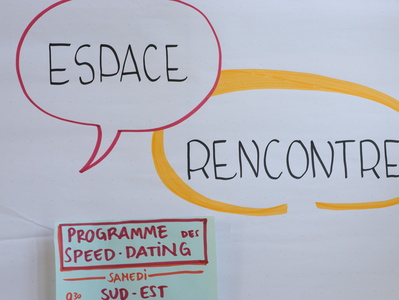 ESPACE
RENCONTRE
PROGRAMME DES
SPEED-DATING
SAMEDI
9h30 SUD-EST